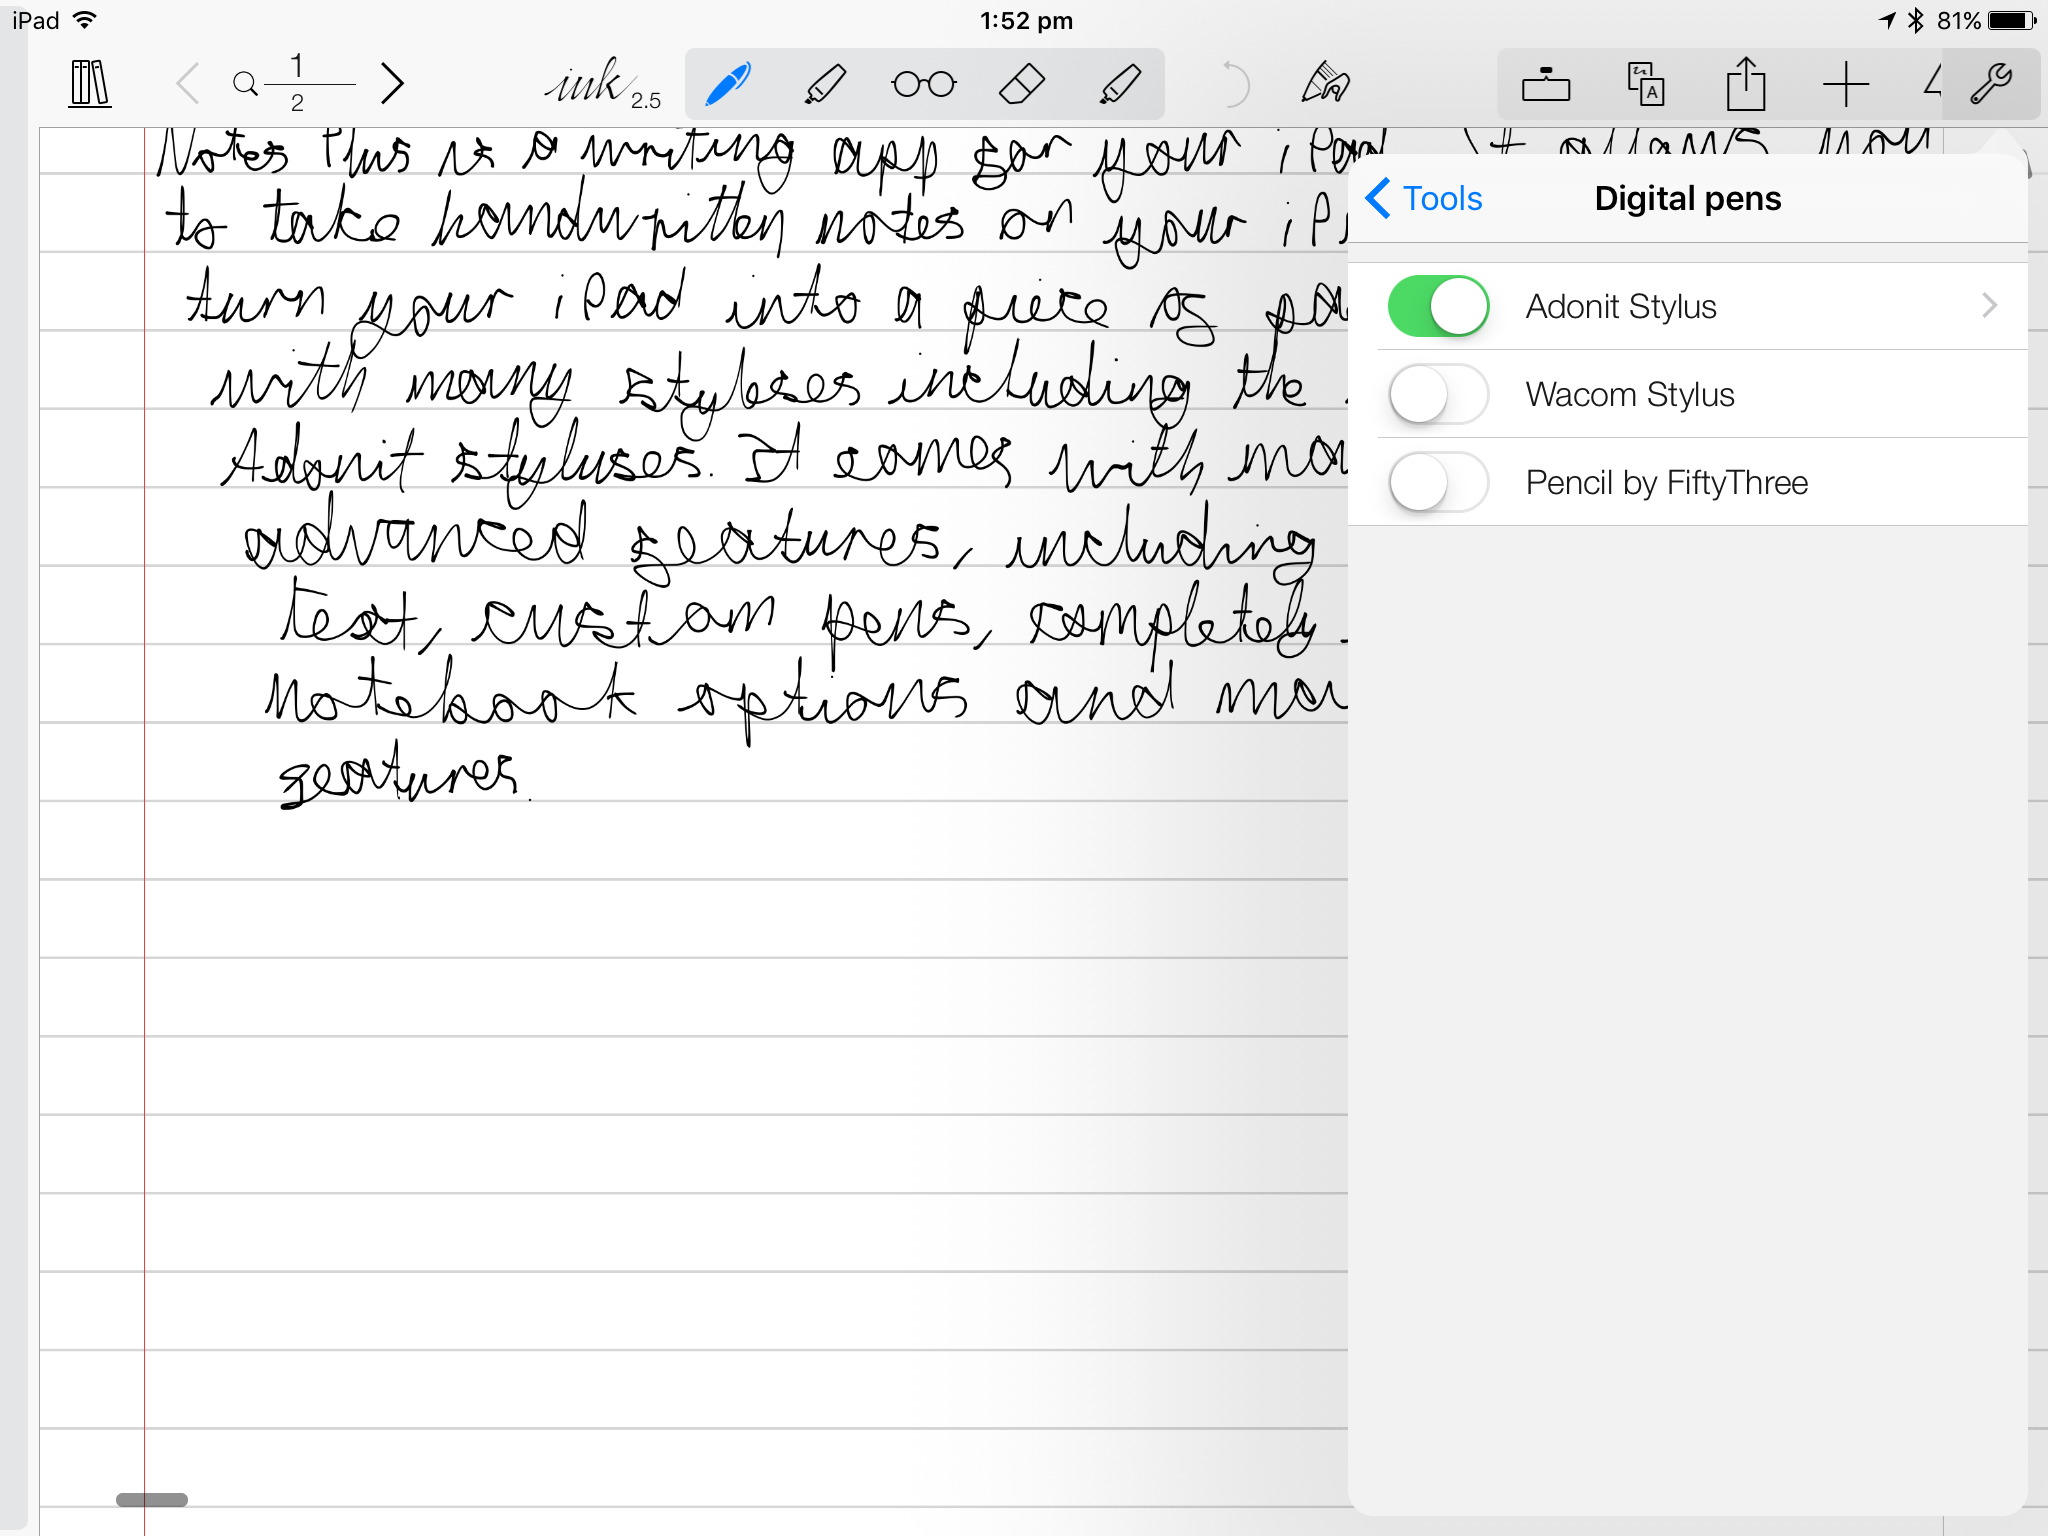 iPad 1:52 pm 81%
1
2
ink 2.5
Notes Plus is a writing app for your iPad. It allows you
to take handwritten notes on your
turn your iPad into a piece of
with many styluses including the
Adonit styluses. It comes with
advanced features, including
text, custom pens, completely
notebook options and
features.
Tools
Digital pens
Adonit Stylus
Wacom Stylus
Pencil by FiftyThree